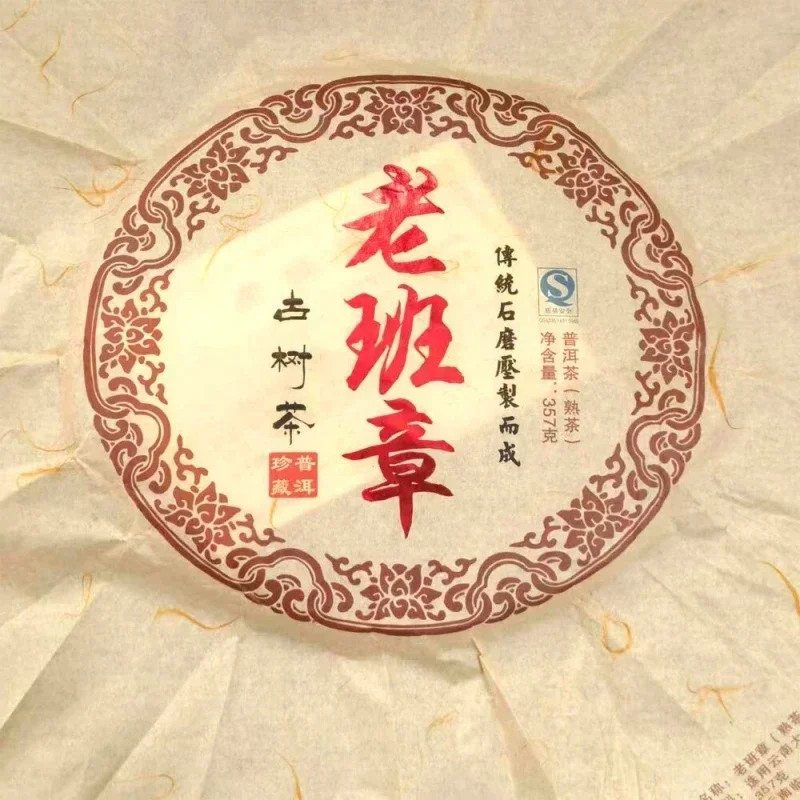 老班章
古树茶
普洱
珍藏
傳統石磨壓製而成
普洱茶（熟茶）
净含量：357克
老班章（熟茶
选用云南大
357克